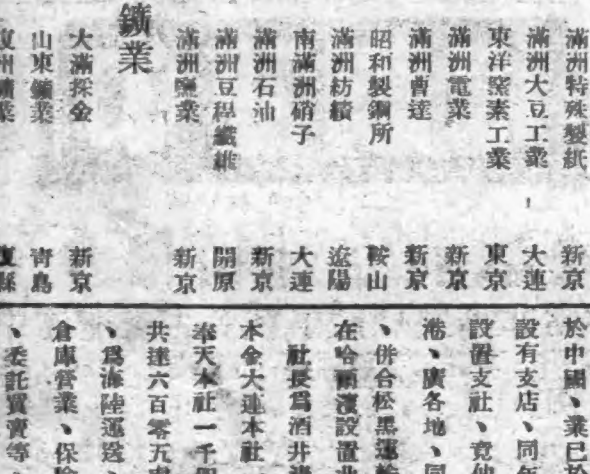 滿洲特殊製紙 新京
滿洲大豆工業 大連
東洋窒素工業 東京
滿洲電業 新京
滿洲曹達 新京
昭和製鋼所 鞍山
滿洲紡績 遼陽
南滿洲硝子 大連
滿洲石油 新京
滿洲豆稈纖維 開原
滿洲鹽業 新京
鑛業
大滿採金 新京
山東鑛業 靑島
復州鑛業 復縣
於中國、業已於
設有支店、同年
設置支社、竟他
港、廣各地、同
、併合松黑運輸
在哈爾濱設置北
社長爲酒井
本金大連本社
奉天本社一千
共達六百零五
、爲海陸運送、
倉庫營業、保險
、委託買賣等、